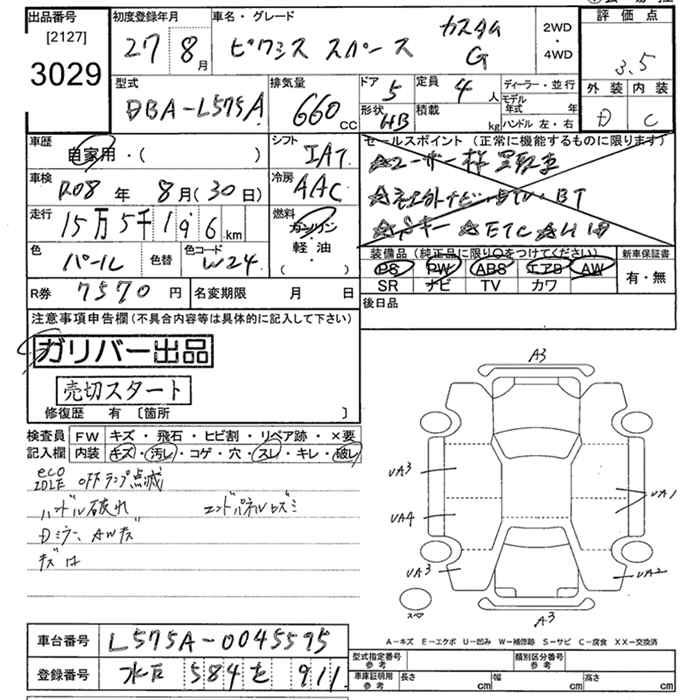 出品番号 初度登録年月 車名・グレード 評価点
[2127] 27年 8月 カスタム 2WD・4WD 3.5
3029 G 外装 内装
D C
型式 排気量 ドア 5 定員 4人 ディーラー・並行
DBA-L575A 660cc 形状 HB 積載 kg モデル年式 年
ハンドル 左・右
車歴 シフト セールスポイント(正常に機能するものに限ります)
自家用・( ) IAT ☆ユーザー様買取車
車検 冷房 BT
R08年 8月(30日) AAC ETC
走行 燃料
15万5千196km ガソリン
軽・油
・( )
色 色替 色コード 装備品(純正品に限り○をつけてください) 新車保証書
パール W24 PS PW ABS エアB AW 有・無
SR ナビ TV カワ
R券 7570円 名変期限 月 日 後日品
注意事項申告欄(不具合内容等は具体的に記入して下さい)
ガリバー出品
売切スタート
修復歴 有 [箇所 ]
検査員 FW キズ・飛石・ヒビ割・リペア跡・×要
記入欄 内装 キズ・汚レ・コゲ・穴・スレ・キレ・破レ
eco
IDLE OFFランプ点滅
ハンドル破れ エンドパネルUズミ
Dミラー、AWキズ
A3
UA3 UA1
UA4
UA3 UA2
スペア A3
A-キズ E-エクボ U-凹み W-補修跡 S-サビ C-腐食 XX-交換済
車台番号 L575A-0045595 型式指定番号 参考 類別区分番号 参考
登録番号 水戸 584 を 911 車庫証明用 参考 長さ cm 幅 cm 高さ cm